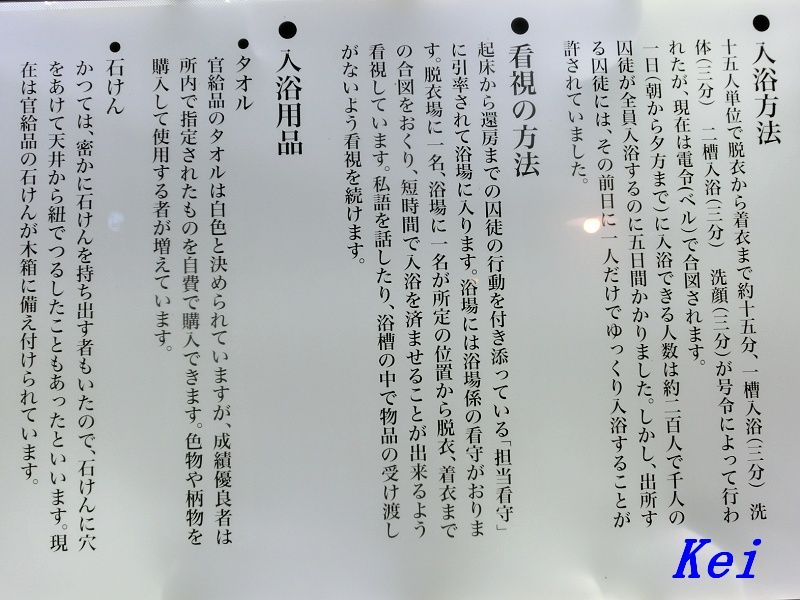 ●入浴方法
十五人単位で脱衣から着衣まで約十五分、一槽入浴(三分) 洗
体(三分) 二槽入浴(三分) 洗顔(三分)が号令によって行わ
れたが、現在は電令(ベル)で合図されます。
一日(朝から夕方まで)に入浴できる人数は約二百人で千人の
囚徒が全員入浴するのに五日間かかりました。しかし、出所す
る囚徒には、その前日に一人だけでゆっくり入浴することが
許されていました。
●看視の方法
起床から還房までの囚徒の行動を付き添っている「担当看守」
に引率されて浴場に入ります。浴場には浴場係の看守がおりま
す。脱衣場に一名、浴場に一名が所定の位置から脱衣、着衣まで
の合図をおくり、短時間で入浴を済ませることが出来るよう
看視しています。私語を話したり、浴槽の中で物品の受け渡し
がないよう看視を続けます。
●入浴用品
●タオル
官給品のタオルは白色と決められていますが、成績優良者は
所内で指定されたものを自費で購入できます。色物や柄物を
購入して使用する者が増えています。
●石けん
かつては、密かに石けんを持ち出す者もいたので、石けんに穴
をあけて天井から紐でつるしたこともあったといいます。現
在は官給品の石けんが木箱に備え付けられています。
Kei